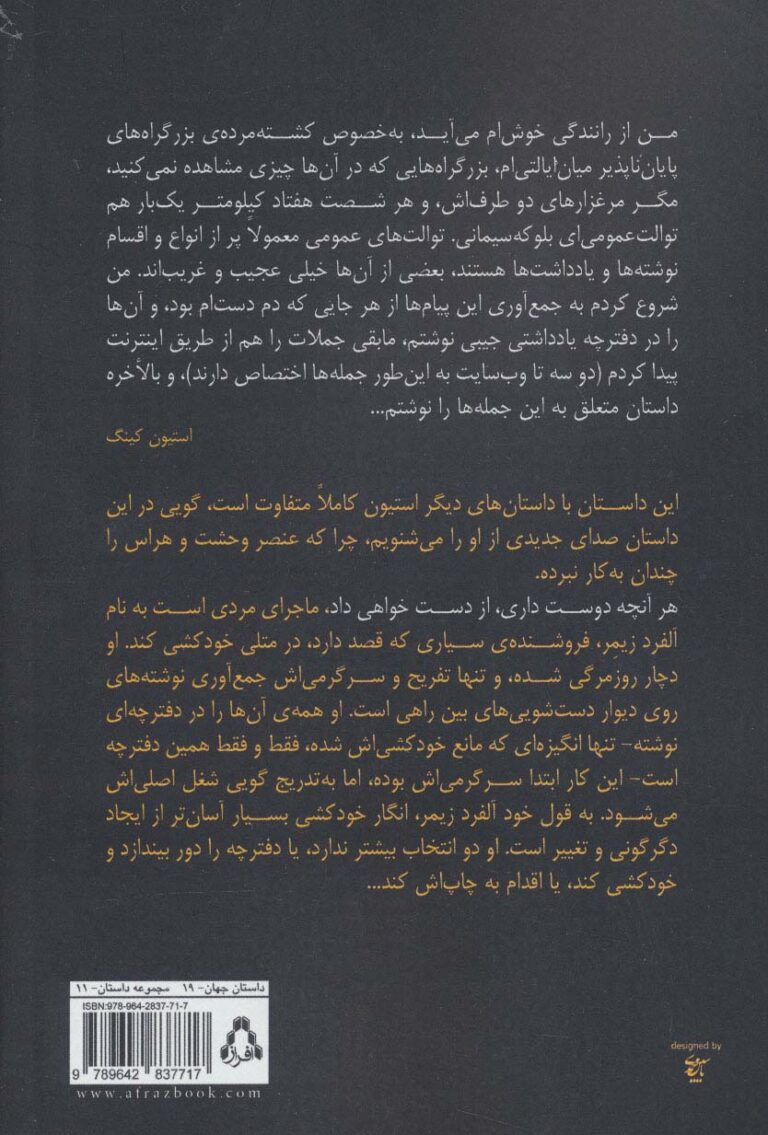 من از رانندگی خوش‌ام می‌آید، به‌خصوص کشته‌مرده‌ی بزرگراه‌های
پایان‌ناپذیر میان‌ایالتی‌ام، بزرگراه‌هایی که در آن‌ها چیزی مشاهده نمی‌کنید،
مگر مرغزارهای دو طرف‌اش، و هر شصت هفتاد کیلومتر یک‌بار هم
توالت‌عمومی‌ای بلوکه‌سیمانی. توالت‌های عمومی معمولاً پر از انواع و اقسام
نوشته‌ها و یادداشت‌ها هستند، بعضی از آن‌ها خیلی عجیب و غریب‌اند. من
شروع کردم به جمع‌آوری این پیام‌ها از هر جایی که دم دست‌ام بود، و آن‌ها
را در دفترچه یادداشتی جیبی نوشتم، مابقی جملات را هم از طریق اینترنت
پیدا کردم (دو سه تا وب‌سایت به این‌طور جمله‌ها اختصاص دارند)، و بالأخره
داستان متعلق به این جمله‌ها را نوشتم...
استیون کینگ
این داستان با داستان‌های دیگر استیون کاملاً متفاوت است، گویی در این
داستان صدای جدیدی از او را می‌شنویم، چرا که عنصر وحشت و هراس را
چندان به‌کار نبرده.
هر آنچه دوست داری، از دست خواهی داد، ماجرای مردی است به نام
آلفرد زیمِر، فروشنده‌ی سیاری که قصد دارد، در متلی خودکشی کند. او
دچار روزمرگی شده، و تنها تفریح و سرگرمی‌اش جمع‌آوری نوشته‌های
روی دیوار دست‌شویی‌های بین راهی است. او همه‌ی آن‌ها را در دفترچه‌ای
نوشته- تنها انگیزه‌ای که مانع خودکشی‌اش شده، فقط و فقط همین دفترچه
است- این کار ابتدا سرگرمی‌اش بوده، اما به‌تدریج گویی شغل اصلی‌اش
می‌شود. به قول خود آلفرد زیمر، انگار خودکشی بسیار آسان‌تر از ایجاد
دگرگونی و تغییر است. او دو انتخاب بیشتر ندارد، یا دفترچه را دور بیندازد و
خودکشی کند، یا اقدام به چاپ‌اش کند...
داستان جهان- ۱۹ مجموعه داستان- ۱۱
ISBN:978-964-2837-71-7
افراز
9 789642 837717
www.afrazbook.com
designed by